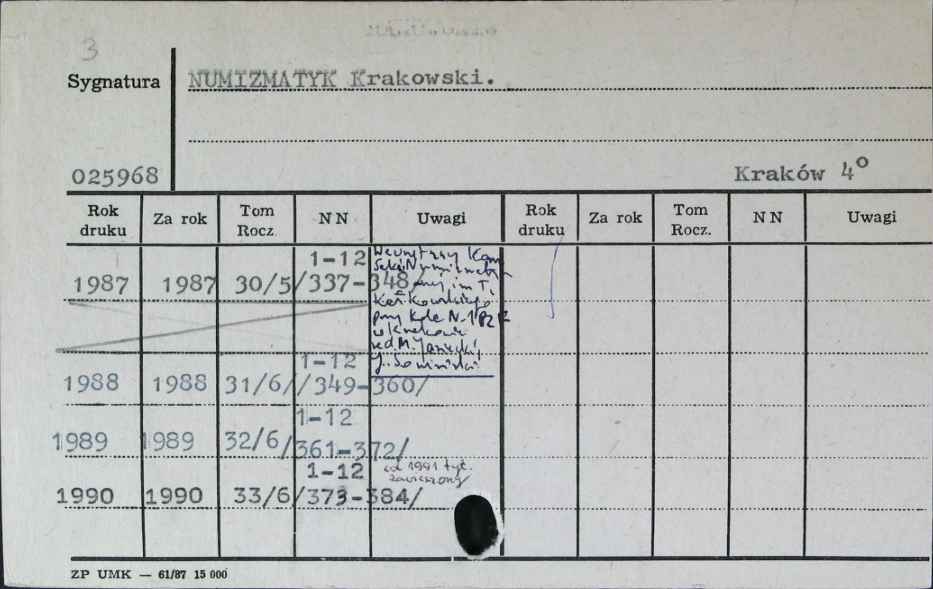 3
Sygnatura NUMIZMATYK Krakowski.
025968 Kraków 4°
Rok druku Za rok Tom Rocz. N N Uwagi Rok druku Za rok Tom Rocz. N N Uwagi
1-12
1987 1987 30/5 /337-348/
Kom
im T.
przy Kole N.1 PZF
w Krakowie
red. M.
J.
1-12
1988 1988 31/6/ /349-360/
1-12
1989 1989 32/6 /361-372/
1-12 od 1991 tyt.
zawieszony
1990 1990 33/6 /373-384/
ZP UMK — 61/87 15 000